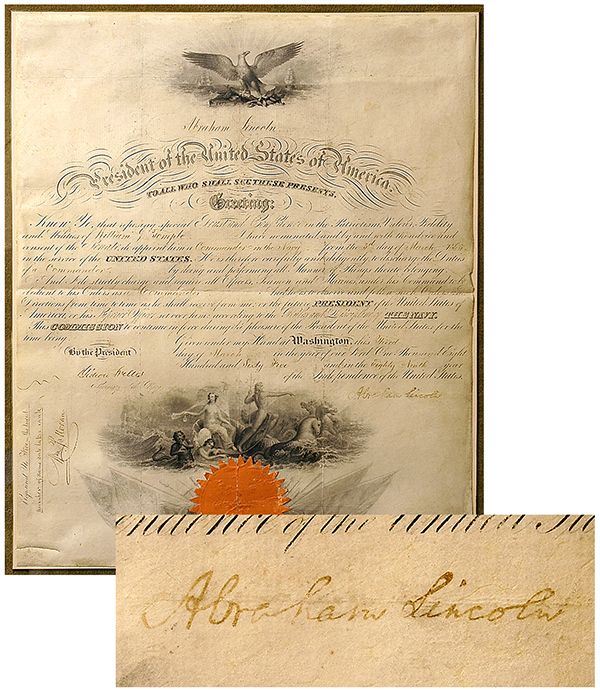 Abraham Lincoln
President of the United States of America.
TO ALL WHO SHALL SEE THESE PRESENTS,
Greeting:
Know Ye, that reposing special Trust and Confidence in the Patriotism, Valor, Fidelity
and Abilities of William Temple I have nominated and by and with the advice and
consent of the Senate, do appoint him a Commander in the Navy from the 3rd day of March 1865
in the service of the UNITED STATES. He is therefore carefully and diligently to discharge the Duties
of a Commander by doing and performing all Manner of Things thereto belonging.
And I do strictly charge and require all Officers, Seamen and Marines under his Command to be
obedient to his orders as Commander And he is to observe and follow such Orders and
Directions from time to time as he shall receive from me, or the future PRESIDENT of the United States of
America, or his Superior Officer set over him, according to the Rules and Discipline of THE NAVY.
This COMMISSION to continue in force during the pleasure of the President of the United States for the
time being.
Given under my Hand at Washington, this Third
By the President
day of March in the year of our Lord One Thousand Eight
Hundred and Sixty Five and in the Eighty Ninth year
of the Independence of the United States.
Gideon Welles
Secretary of the Navy
Abraham Lincoln
endence of the United Sta
Abraham Lincoln